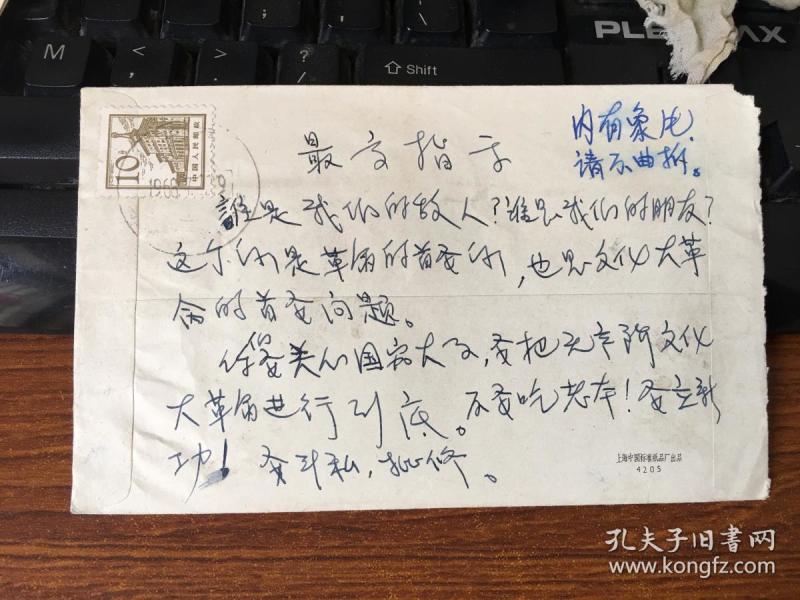 M
<
,
>
.
?
/
⇧ Shift
10
中国人民邮政
196
内有象片.
请不曲折。
最高指示
誰是我们的敌人?谁是我们的朋友?
这个问是革命的首要问,也是文化大革
命的首要问题。
你要关心国家大事,要把无产阶文化
大革命进行到底。不要吃老本!要立新
功!要斗私,批修。
上海中国标准纸品厂出品
4205
孔夫子旧书网
www.kongfz.com